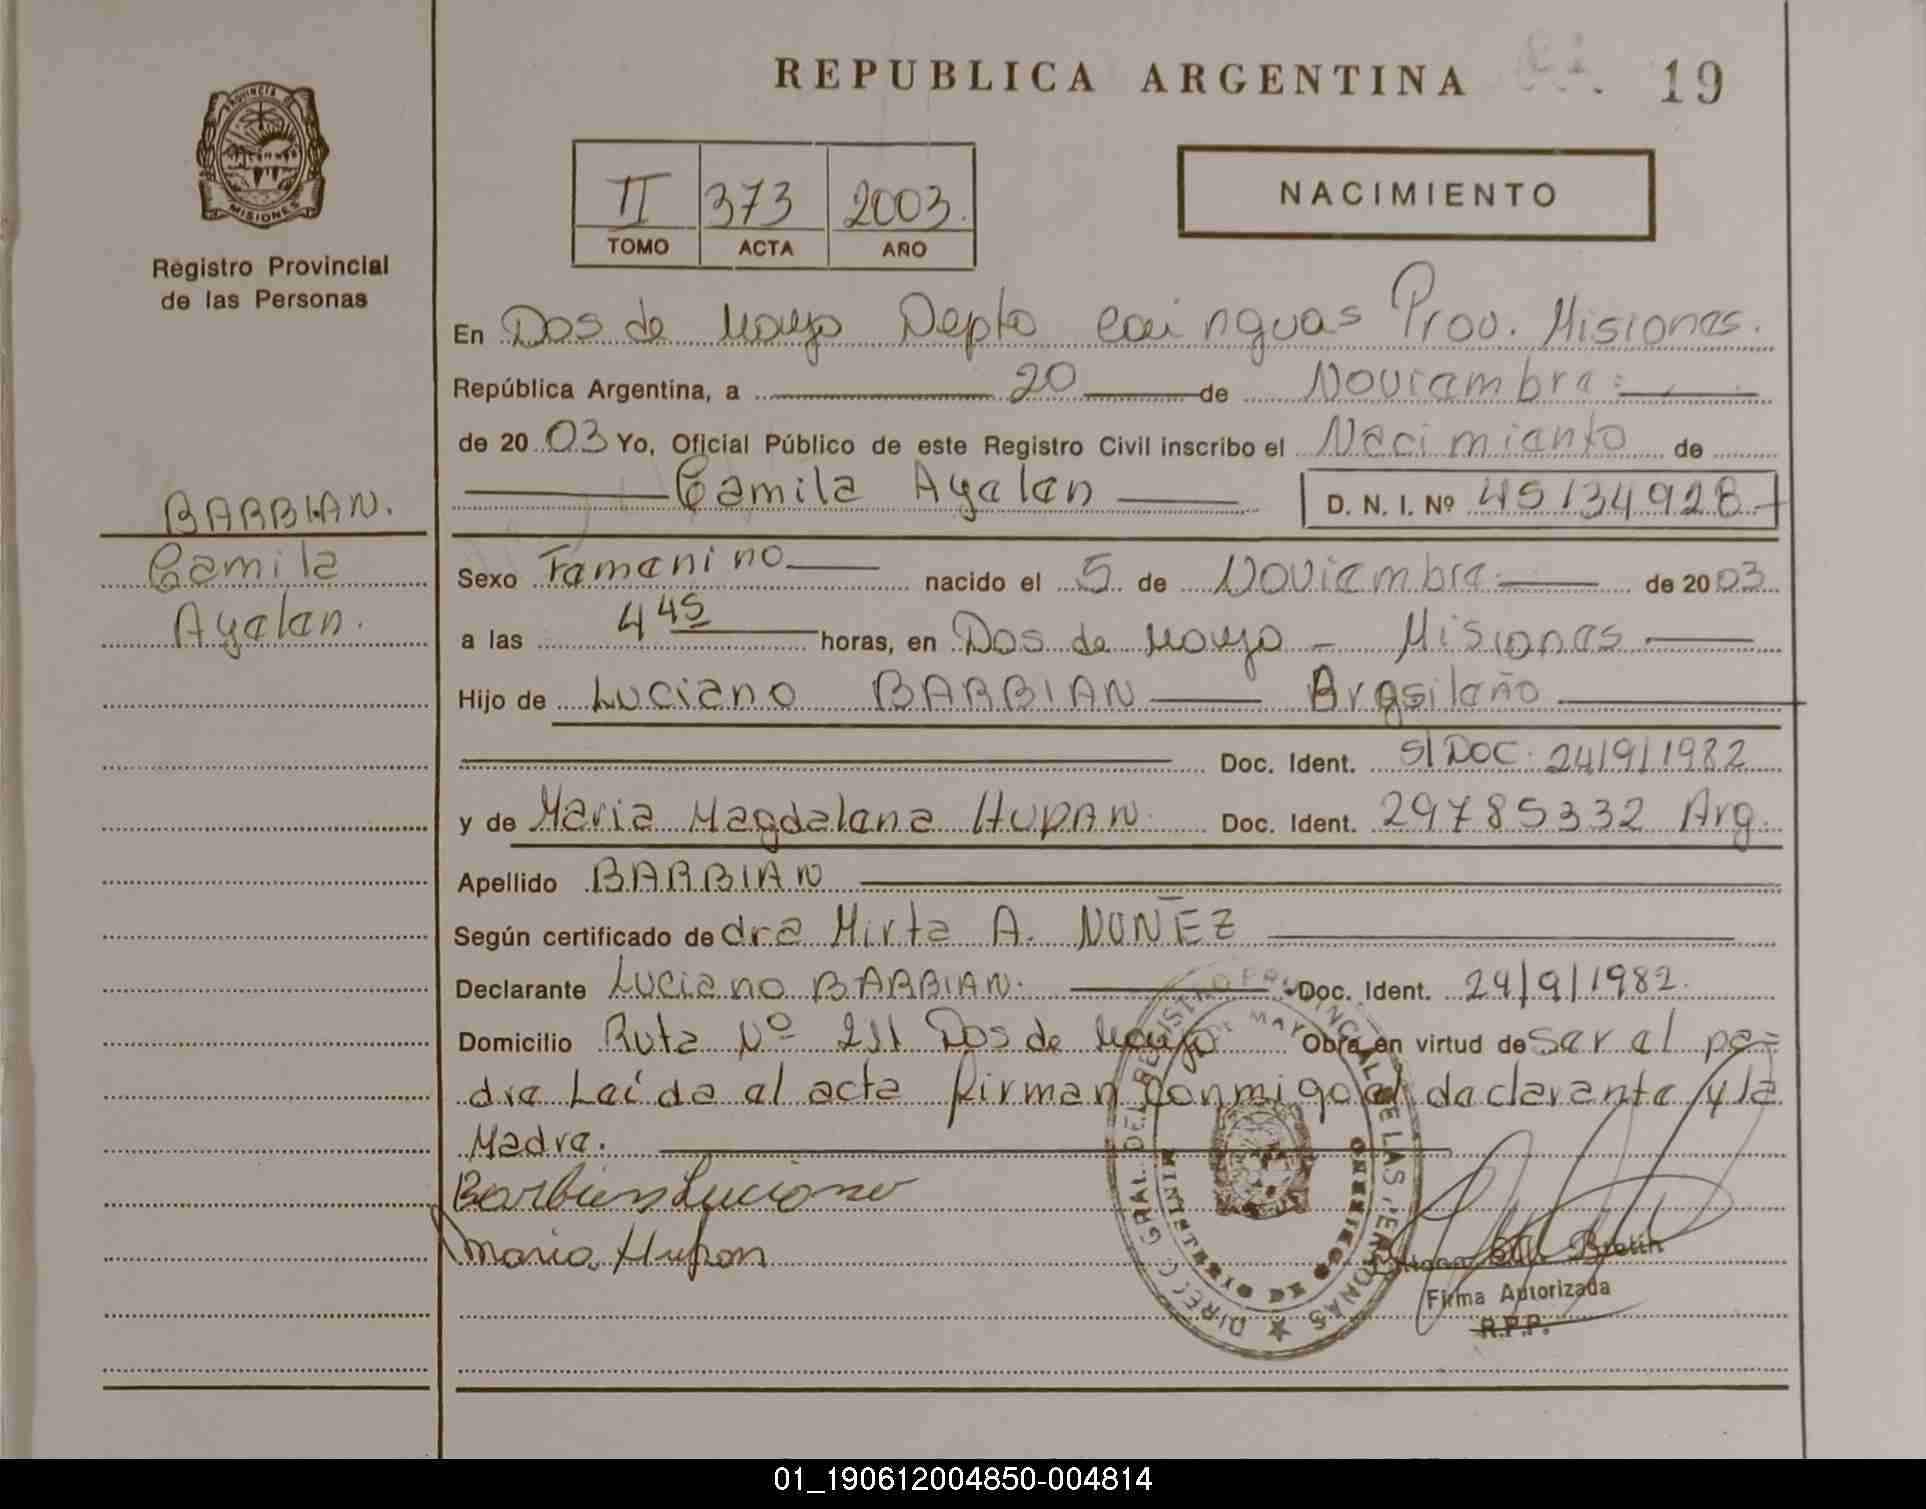 REPUBLICA ARGENTINA 19
PROVINCIA DE
MISIONES
Registro Provincial
de las Personas
II 373 2003.
TOMO ACTA AÑO
NACIMIENTO
En Dos de Mayo Depto Cainguas Prov. Misiones.
República Argentina, a 20 de Noviembre
de 20 03 Yo, Oficial Público de este Registro Civil inscribo el Nacimiento de
Camila Ayelen D. N. I. Nº 45134928
BARBIAN.
Camila
Ayelen.
Sexo Femenino nacido el 5 de Noviembre de 20 03
a las 4 45 horas, en Dos de Mayo - Misiones
Hijo de Luciano BARBIAN Brasileño
Doc. Ident. S/DOC. 24/9/1982
y de Maria Magdalena HUPAN Doc. Ident. 29785332 Arg.
Apellido BARBIAN
Según certificado de dra Mirta A. NUÑEZ
Declarante Luciano BARBIAN. Doc. Ident. 24/9/1982.
Domicilio Ruta Nº 211 Dos de Mayo Obra en virtud de ser el pa=
dre Leída el acta firman conmigo el declarante y la
Madre.
Barbian Luciano
Maria Hupan
DIREC. GRAL. DEL REGISTRO PROVINCIAL DE LAS PERSONAS
DE MAYO
MINISTERIO DE GOBIERNO
Firma Autorizada
R.P.P.
01_190612004850-004814